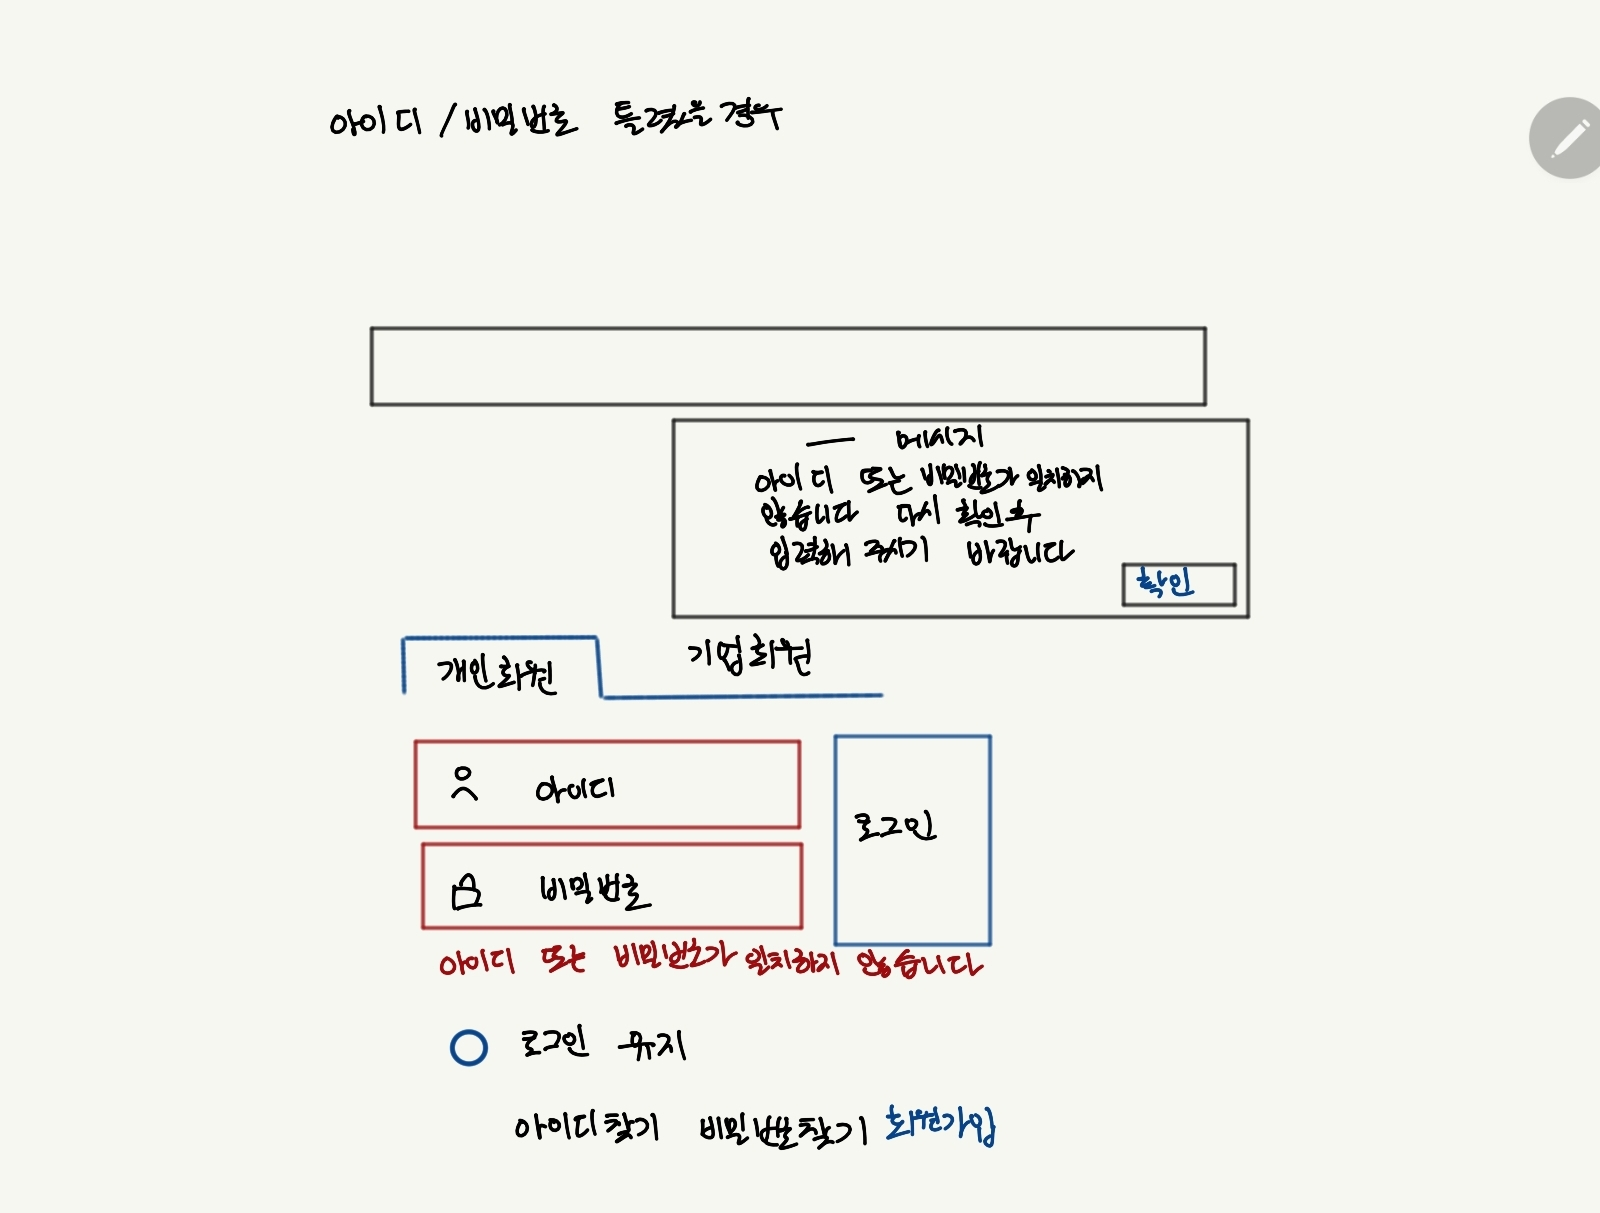 아이디 / 비밀번호 틀렸을 경우
— 메시지
아이디 또는 비밀번호가 일치하지
않습니다 다시 확인 후
입력해 주시기 바랍니다
확인
개인회원 기업회원
아이디
비밀번호
로그인
아이디 또는 비밀번호가 일치하지 않습니다
로그인 유지
아이디찾기 비밀번호찾기 회원가입